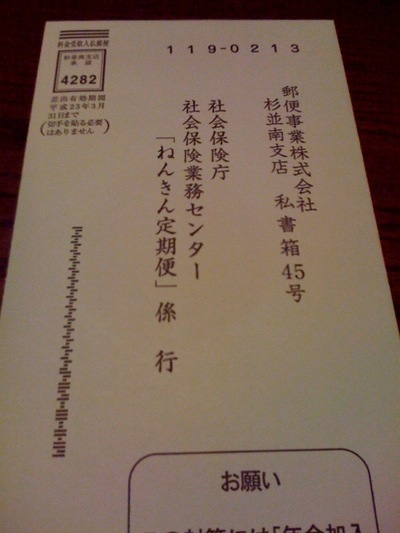 料金受取人払郵便
杉並南支店
承認
4282
差出有効期間
平成23年3月
31日まで
(切手を貼る必要
はありません)
119-0213
郵便事業株式会社
杉並南支店 私書箱45号
社会保険庁
社会保険業務センター
「ねんきん定期便」係 行
お願い
この封筒には「年金加入